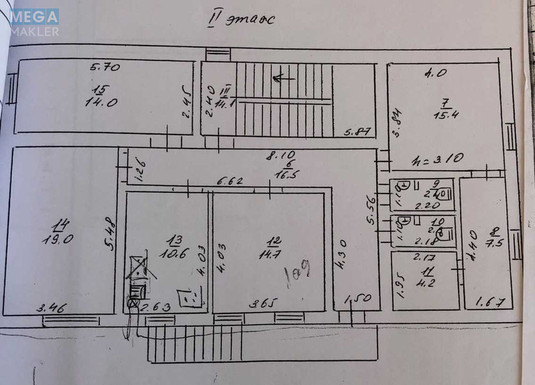 MEGA
MAKLER
II этаж
5.70
15
14.0
2.45
2.40
III
14.1
5.87
5.84
4.0
7
15.4
h=3.10
1.26
8.10
6
16.5
6.62
5.56
1.10
9
2.4
2.20
1.10
10
2.18
2.17
11
4.2
1.95
4.40
8
7.5
1.67
14
19.0
5.48
3.46
13
10.6
4.03
2.63
4.03
12
14.7
109
3.65
4.30
1.50